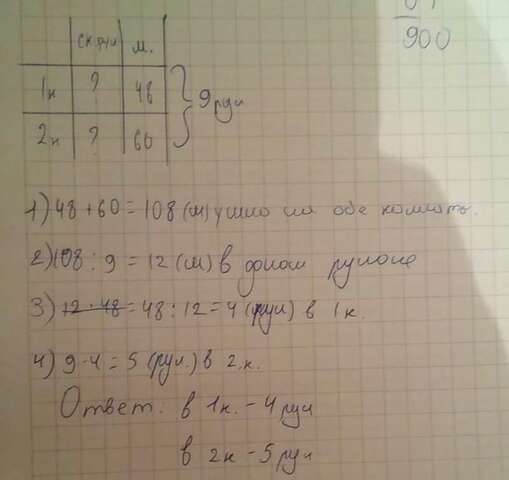 900
ск. рул м.
1к ? 48
9 рул
2к ? 60
1) 48 + 60 = 108 (м) ушло на обе комнаты.
2) 108 : 9 = 12 (м) в одном рулоне
3) 12 · 48 = 48 : 12 = 4 (рул) в 1 к.
4) 9 - 4 = 5 (рул.) в 2 к.
Ответ: в 1к. - 4 рул
в 2к - 5 рул